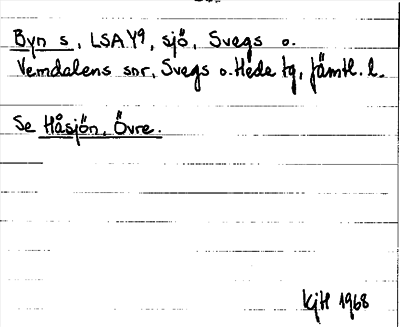 Byn s, LSA Y9, sjö, Svegs o.
Vemdalens snr, Svegs o. Hede tg, Jämtl. l.
Se Håsjön, Övre.
KjH 1968